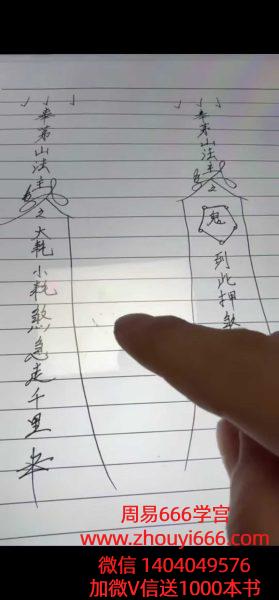 奉茅山法主之
鬼
到此押煞
奉茅山法主
之大耗小耗煞急走千里
周易666学宫
www.zhouyi666.com
微信 1404049576
加微V信送1000本书